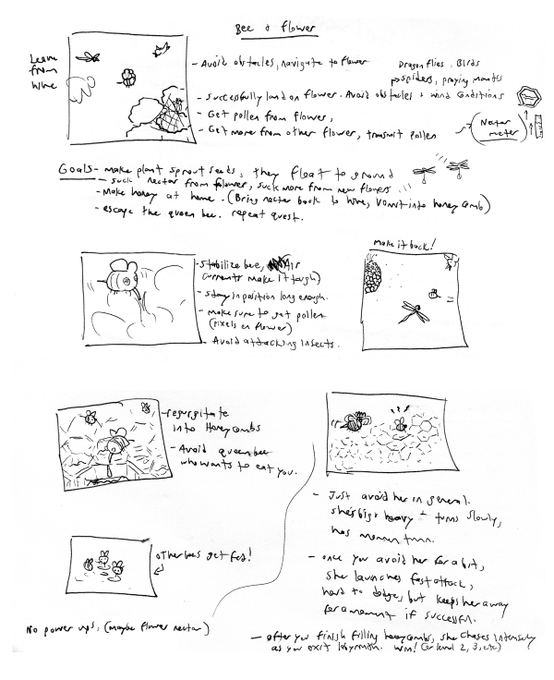 Bee & flower
Leave from hive
- Avoid obstacles, navigate to flower
Dragonflies, Birds
spiders, praying mantis
- successfully land on flower. Avoid obstacles + wind conditions
- Get pollen from flower,
- Get more from other flower, transmit pollen
(Nectar meter)
Goals - make plant sprout seeds, they float to ground
- suck nectar from flower, suck more from new flowers
- Make honey at home. (Bring nectar back to hive, vomit into honey comb)
- escape the queen bee. repeat quest.
- Stabilize bee, Air
currents make it tough)
- stay in position long enough.
- make sure to get pollen
(pixels on flower)
- Avoid attacking insects.
make it back!
- regurgitate
into Honeycombs
- Avoid queen bee
who wants to eat you.
other bees get fed!
No power ups, (maybe flower nectar)
- Just avoid her in general.
she's big + heavy + turns slowly,
has momentum.
- once you avoid her for a bit,
she launches fast attack,
hard to dodge, but keeps her away
for a moment if successful.
- after you finish filling honeycombs, she chases intensely
as you exit labyrinth. win! (or level 2, 3, etc)